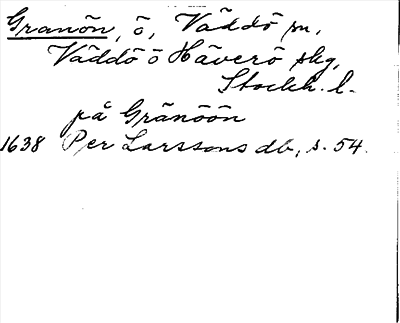 Granön, ö, Väddö sn,
Väddö o Häverö skg,
Stockh. l.
på Gränöön
1638 Per Larssons db, s. 54.